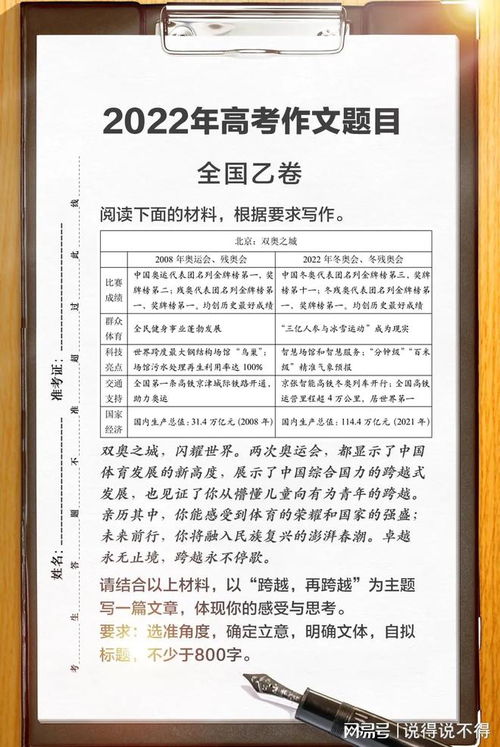 2022年高考作文题目
全国乙卷
阅读下面的材料，根据要求写作。
北京：双奥之城
2008 年奥运会、残奥会
2022 年冬奥会、冬残奥会
比赛
成绩
中国奥运代表团名列金牌榜第一、奖
牌榜第二；残奥代表团名列金牌榜第
一、奖牌榜第一。均创历史最好成绩
中国冬奥代表团名列金牌榜第三、奖
牌榜第十一；冬残奥代表团名列金牌榜
第一、奖牌榜第一。均创历史最好成绩
群众
体育
全民健身事业蓬勃发展
“三亿人参与冰雪运动”成为现实
科技
亮点
世界跨度最大钢结构场馆“鸟巢”；
场馆污水处理再生利用率达 100%
智慧场馆和智慧服务；“分钟级”“百米
级”精准气象预报
交通
支持
全国第一条高铁京津城际铁路开通，
助力奥运
京张智能高铁冬奥列车开行；全国高铁
运营里程超 4 万公里，居世界第一
国家
经济
国内生产总值：31.4 万亿元 (2008 年)
国内生产总值：114.4 万亿元 (2021 年)
双奥之城，闪耀世界。两次奥运会，都显示了中国
体育发展的新高度，展示了中国综合国力的跨越式
发展，也见证了你从懵懂儿童向有为青年的跨越。
亲历其中，你能感受到体育的荣耀和国家的强盛；
未来前行，你将融入民族复兴的澎湃春潮。卓越
永无止境，跨越永不停歇。
请结合以上材料，以“跨越，再跨越”为主题
写一篇文章，体现你的感受与思考。
要求：选准角度，确定立意，明确文体，自拟
标题，不少于800字。
姓名：
准考证：
考生答题不准超过此线
网易号 | 说得说不得